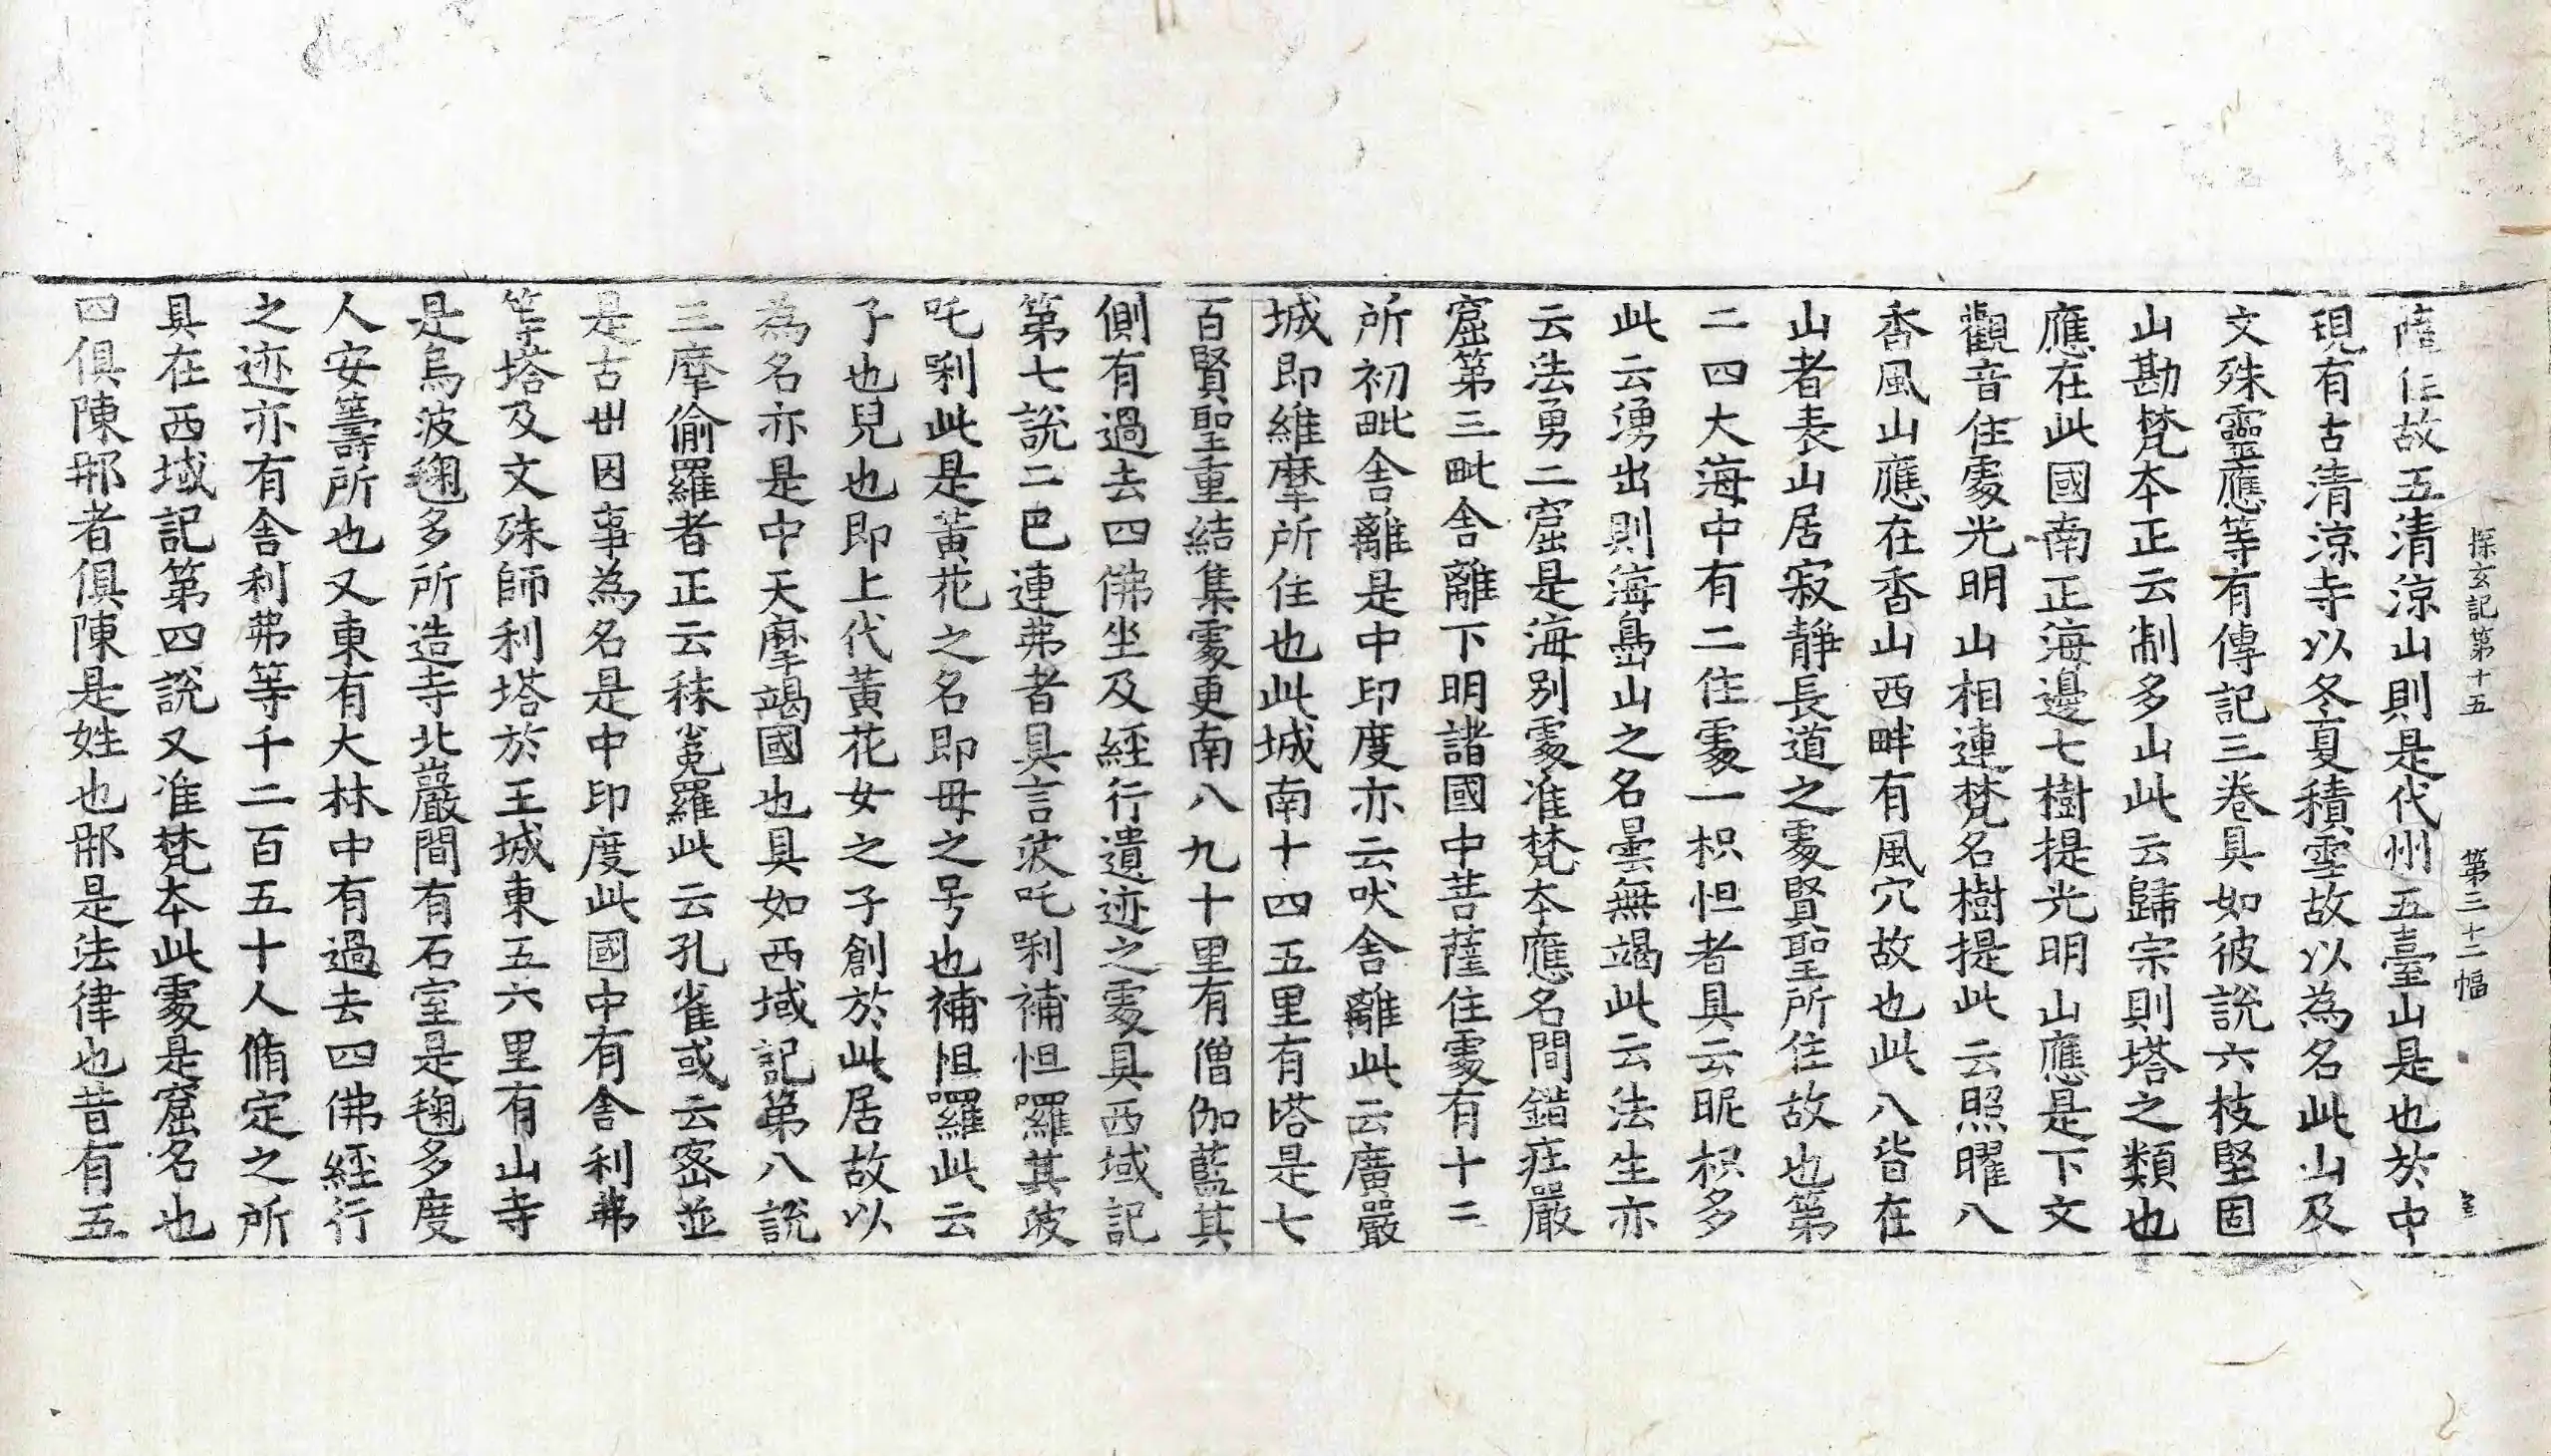 探玄記第十五 第三十二幅
薩住故五清涼山則是代州五臺山是也於中
現有古清涼寺以冬夏積雪故以為名此山及
文殊靈應等有傳記三卷具如彼說六枝堅固
山勘梵本正云制多山此云歸宗則塔之類也
應在此國南正海邊七樹提光明山應是下文
觀音住處光明山相連梵名樹提此云照曜八
香風山應在香山西畔有風穴故也此八皆在
山者表山居寂靜長道之處賢聖所住故也第
二四大海中有二住處一枳怛者具云昵枳多
此云湧出則海島山之名曇無竭此云法生亦
云法勇二窟是海別處准梵本應名間錯莊嚴
窟第三毗舍離下明諸國中菩薩住處有十二
所初毗舍離是中印度亦云吠舍離此云廣嚴
城即維摩所住也此城南十四五里有塔是七
百賢聖重結集處更南八九十里有僧伽藍其
側有過去四佛坐及經行遺迹之處具西域記
第七說二巴連弗者具言波吒唎補怛囉其波
吒唎此是黃花之名即母之号也補怛囉此云
子也兒也即上代黃花女之子創於此居故以
為名亦是中天摩竭國也具如西域記第八說
三摩偷羅者正云秣兔羅此云孔雀或云密並
是古世因事為名是中印度此國中有舍利弗
等塔及文殊師利塔於王城東五六里有山寺
是烏波毱多所造寺北巖間有石室是毱多度
人安籌所也又東有大林中有過去四佛經行
之迹亦有舍利弗等千二百五十人脩定之所
具在西域記第四說又准梵本此處是窟名也
四俱陳那者俱陳是姓也那是法律也昔有五